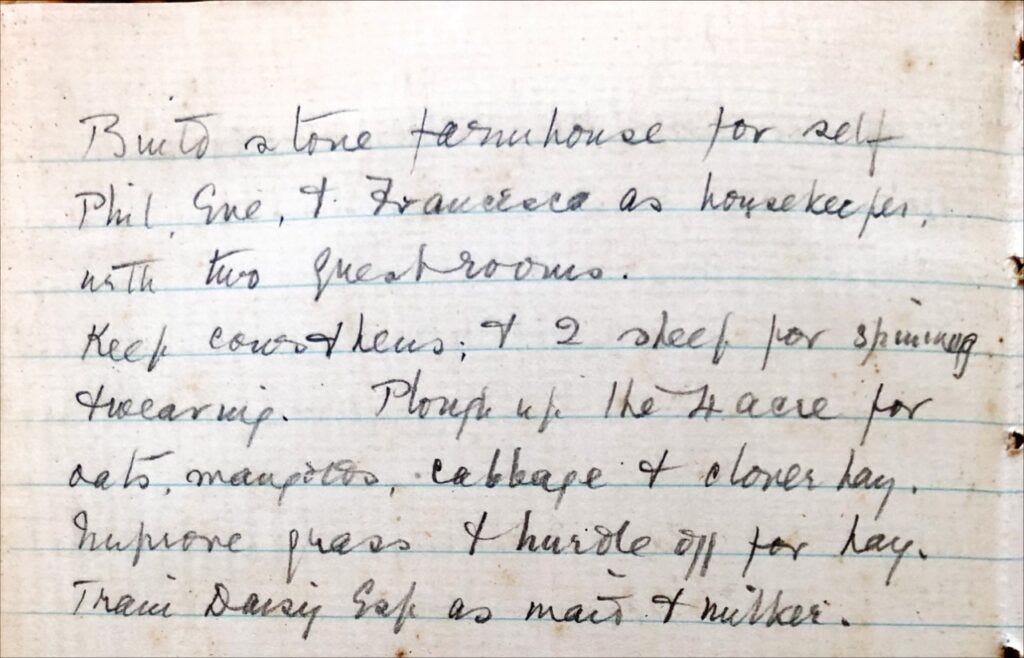 Build stone farmhouse for self
Phil, Evie, & Francesca as housekeeper,
with two guestrooms.
Keep cows & hens; & 2 sheep for spinning
& weaving. Plough up the 4 acre for
oats, mangolds, cabbage & clover hay.
Improve grass & hurdle off for hay.
Train Daisy as maid & milker.